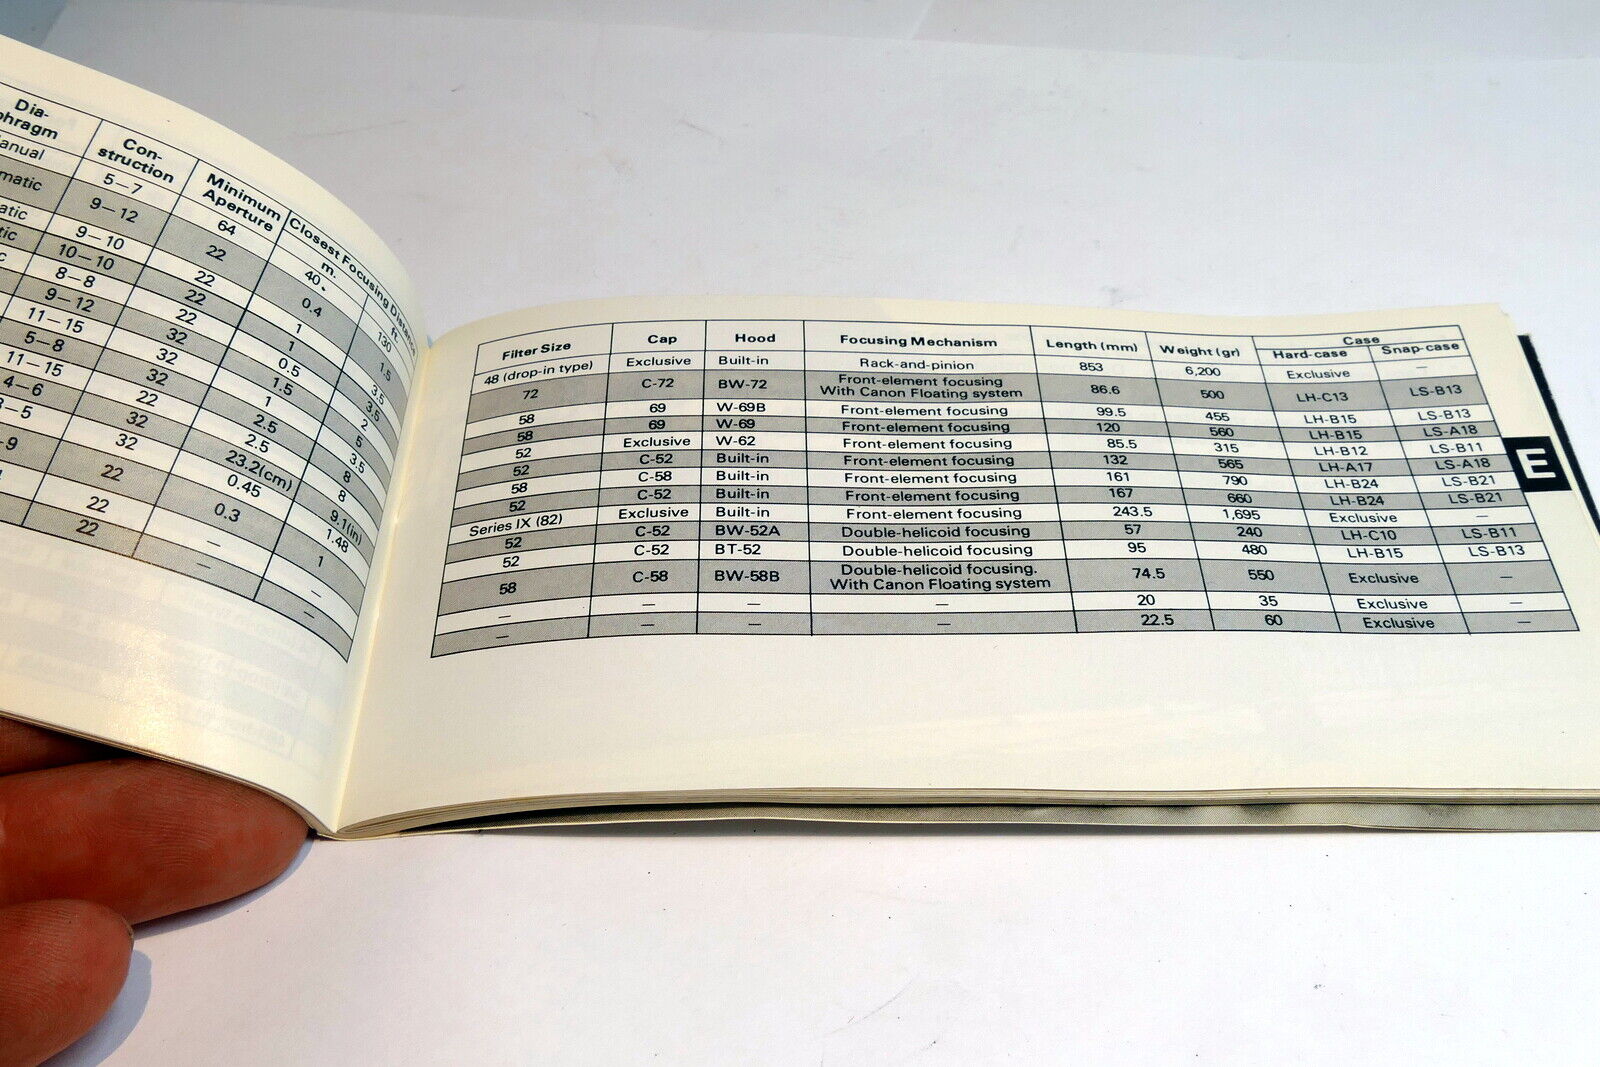 Dia-
phragm Con-
struction Minimum
Aperture Closest Focusing Distance
m. ft.
anual 5–7 64 40 130
matic 9–12 22 0.4 1.5
atic 9–10 22 1 3.5
tic 10–10 22 1 3.5
c 8–8 22 0.5 2
9–12 32 1.5 5
11–15 32 1 3.5
5–8 32 2.5 8
11–15 22 2.5 8
4–6 32 23.2(cm) 9.1(in)
3–5 32 0.45 1.48
–9 22 0.3 1
22 – –
22 – –
Filter Size Cap Hood Focusing Mechanism Length (mm) Weight (gr) Case
Hard-case Snap-case
48 (drop-in type) Exclusive Built-in Rack-and-pinion 853 6,200 Exclusive –
72 C-72 BW-72 Front-element focusing
With Canon Floating system 86.6 500 LH-C13 LS-B13
58 69 W-69B Front-element focusing 99.5 455 LH-B15 LS-B13
58 69 W-69 Front-element focusing 120 560 LH-B15 LS-A18
52 Exclusive W-62 Front-element focusing 85.5 315 LH-B12 LS-B11
52 C-52 Built-in Front-element focusing 132 565 LH-A17 LS-A18
58 C-58 Built-in Front-element focusing 161 790 LH-B24 LS-B21
52 C-52 Built-in Front-element focusing 167 660 LH-B24 LS-B21
Series IX (82) Exclusive Built-in Front-element focusing 243.5 1,695 Exclusive –
52 C-52 BW-52A Double-helicoid focusing 57 240 LH-C10 LS-B11
52 C-52 BT-52 Double-helicoid focusing 95 480 LH-B15 LS-B13
58 C-58 BW-58B Double-helicoid focusing.
With Canon Floating system 74.5 550 Exclusive –
– – – – 20 35 Exclusive –
– – – – 22.5 60 Exclusive –
E